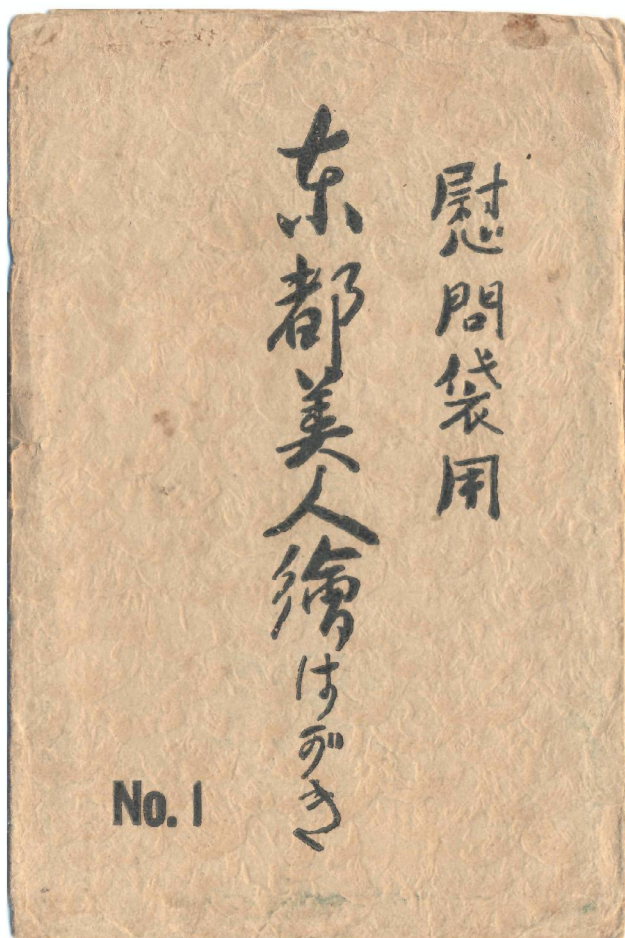 慰問袋用
东都美人繪はがき
No. 1